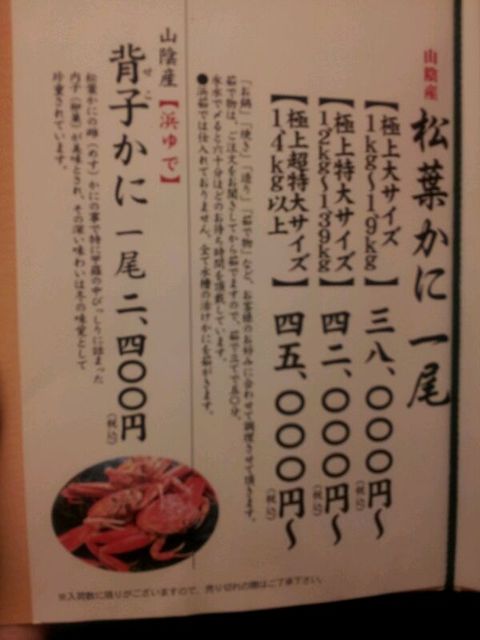 山陰産
松葉かに 一尾
【極上大サイズ
1kg〜1,9kg】 三八、〇〇〇円〜
(税込)
【極上特大サイズ
1,2kg〜1,39kg】 四二、〇〇〇円〜
(税込)
【極上超特大サイズ
1,4kg以上】 四五、〇〇〇円〜
(税込)
「お鍋」「焼き」「造り」「茹で物」など、お客様のお好みに合わせて調理させて頂きます。
茹で物は、ご注文をお聞きしてから茹でますので、茹で立てで五〇分、
氷水で〆ると六十分ほどのお待ち時間を頂戴しています。
●浜茹では仕入れておりません。全て水槽の活けかにを茹がきます。
山陰産【浜ゆで】
背子かに 一尾 二、四〇〇円
せこ
(税込)
松葉かにの雌(めす)かにの事で特に甲羅の中びっしりに詰まった
内子(卵巣)が美味とされ、その深い味わいは冬の味覚として
珍重されています。
※入荷数に限りがございますので、売り切れの際はご了承下さい。